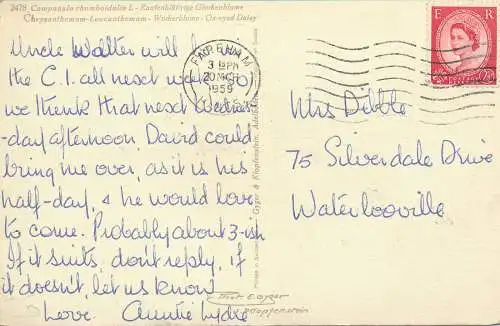 2478 Campanula rhomboidalis L - Rautenblättrige Glockenblume
Chrysanthemum-Leucanthemum - Wucherblume - Ox-eyed Daisy
Uncle Walter will be in
the C.I. all next week, so
we think that next Wednes-
-day afternoon. David could
bring me over, as it is his
half-day, & he would love
to come. Probably about 3-ish
If it suits, don't reply, if
it doesn't, let us know
Love. Auntie Lydie
FAREHAM
3 PM
1959
E R
Mrs Dibble
75 Silverdale Drive
Waterlooville
Gyger & Klopfenstein, Adelboden
Phot. E. Gyger
Klopfenstein